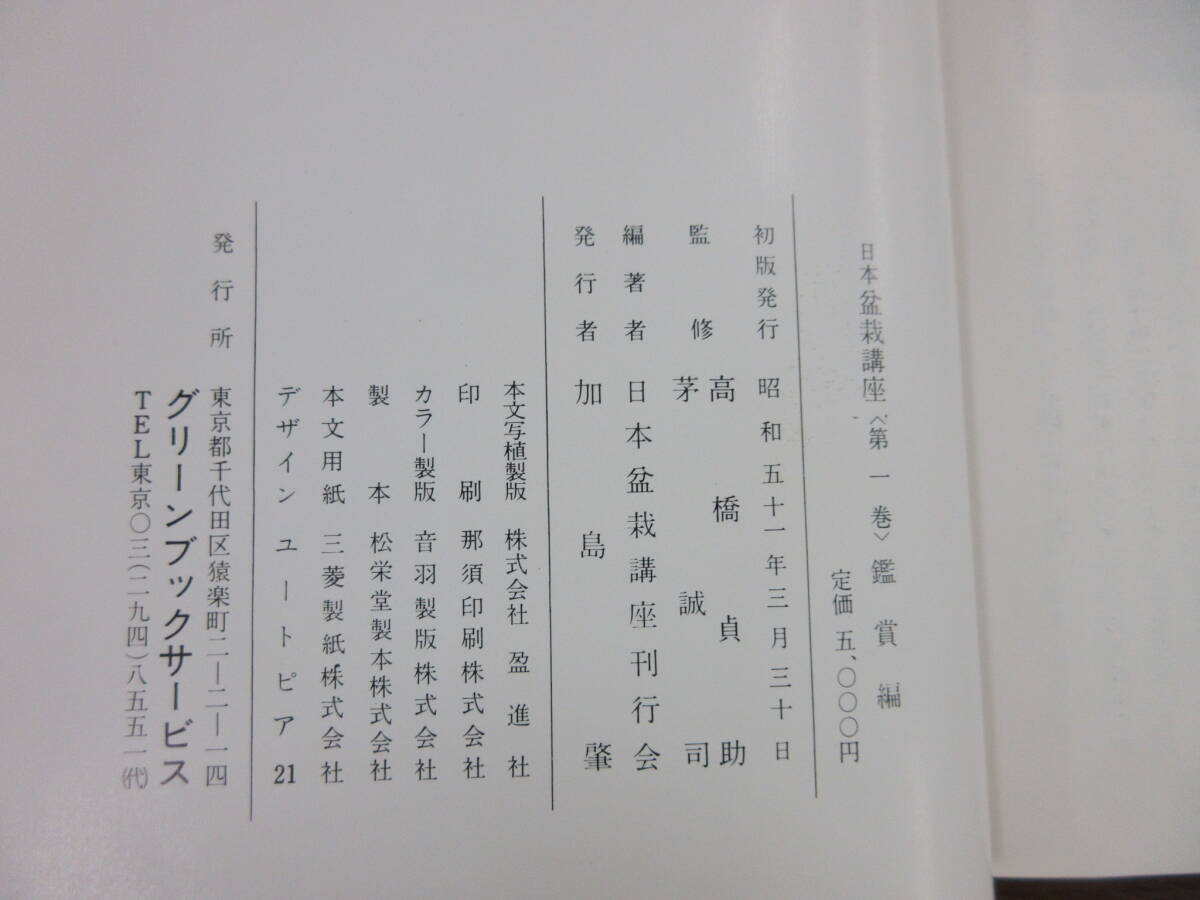 日本盆栽講座〈第一巻〉鑑賞編
定価 五、〇〇〇円
初版発行 昭和五十一年三月三十日
監修 高橋貞助
茅誠司
編著者 日本盆栽講座刊行会
発行者 加島肇
本文写植製版 株式会社盈進社
印刷 那須印刷株式会社
カラー製版 音羽製版株式会社
製本 松栄堂製本株式会社
本文用紙 三菱製紙株式会社
デザイン ユートピア21
発行所 東京都千代田区猿楽町二―二―一四
グリーンブックサービス
TEL東京〇三(二九四)八五五一(代)